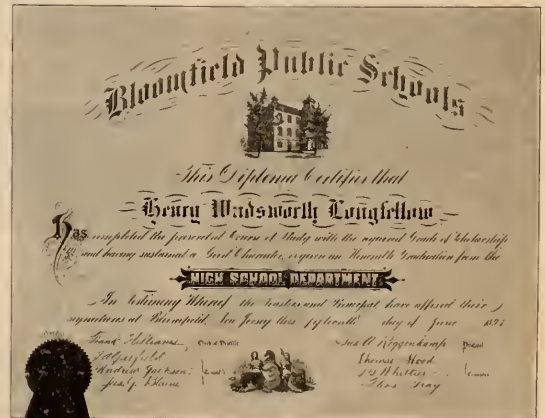 Bloomfield Public Schools
This Diploma Certifies that
Henry Wadsworth Longfellow
Has completed the prescribed Course of Study with the required Grade of Scholarship
and having sustained a Good Character, is given an Honorable Graduation from the
HIGH SCHOOL DEPARTMENT
In testimony Whereof the Trustees and Principal have affixed their
signatures at Bloomfield, New Jersey this fifteenth day of June
Frank Williams
Andrew Jackson
Jas. G. Blaine
Thomas Hood
J. G. Whittier
Thos Gray